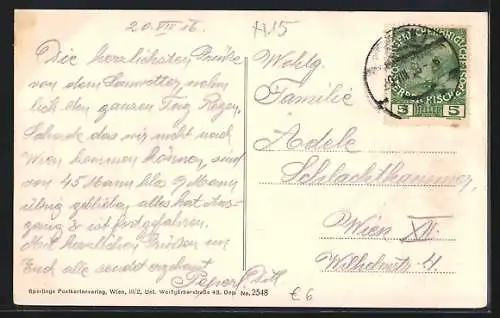 20. VIII 16.
A15
Die herzlichsten Grüße
von dem Sauwetter, neben
lich den ganzen Tag Regen,
Schade das wir nicht nach
Wien kommen können, sind
von 45 Mann blos 9 Mann
übrig geblieben, alles hat Aus-
gang & ist fortgefahren.
Mit herzlichen Grüßen an
Euch alle sendet ergebenst
Wohlg.
Familie
Adele
Schlachthammer,
Wien XII.
Wilhelmstr. 4.
3 HELLER 5
Sperlings Postkartenverlag, Wien, III/2, Unt. Weißgärberstraße 43. Dep. No. 2548
£6